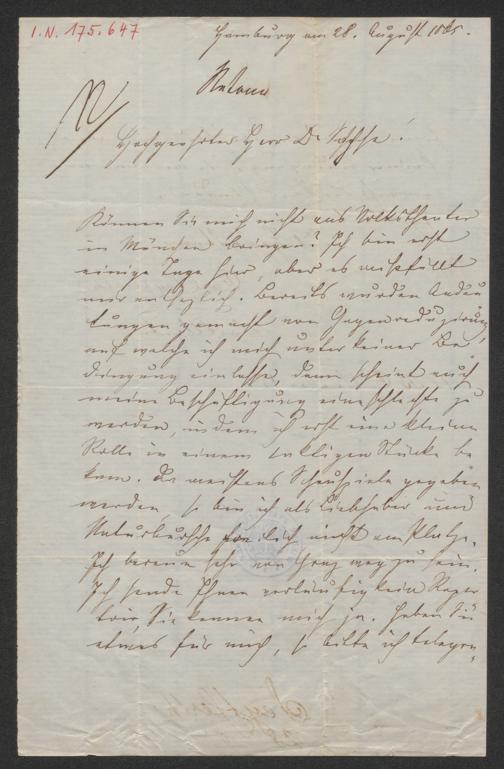 I.N. 175.647
Hamburg am 28. August 1865.
Retour
Hochgeehrter Herr Dr Sachse!
Können Sie mich nicht ans Volkstheater
in München bringen? Ich bin erst
einige Tage hier, aber es mißfällt
mir entsetzlich. Bereits wurden Andeu
tungen gemacht von Gagenreduzirung
auf welche ich mich unter keiner Be
dingung einlasse, dann scheint auch
meine Beschäftigung eine schlechte zu
werden, indem ich erst eine kleine
Rolle in einem Stücke be
kam. Da meistens Schauspiele gegeben
werden, so bin ich als Liebhaber und
Naturbursche freilich nicht am Platze.
Ich bereue sehr von Graz weg zu sein.
Ich sende Ihnen vorläufig kein Reper
toir, Sie kennen mich ja. Haben Sie
etwas für mich, so bitte ich telegra